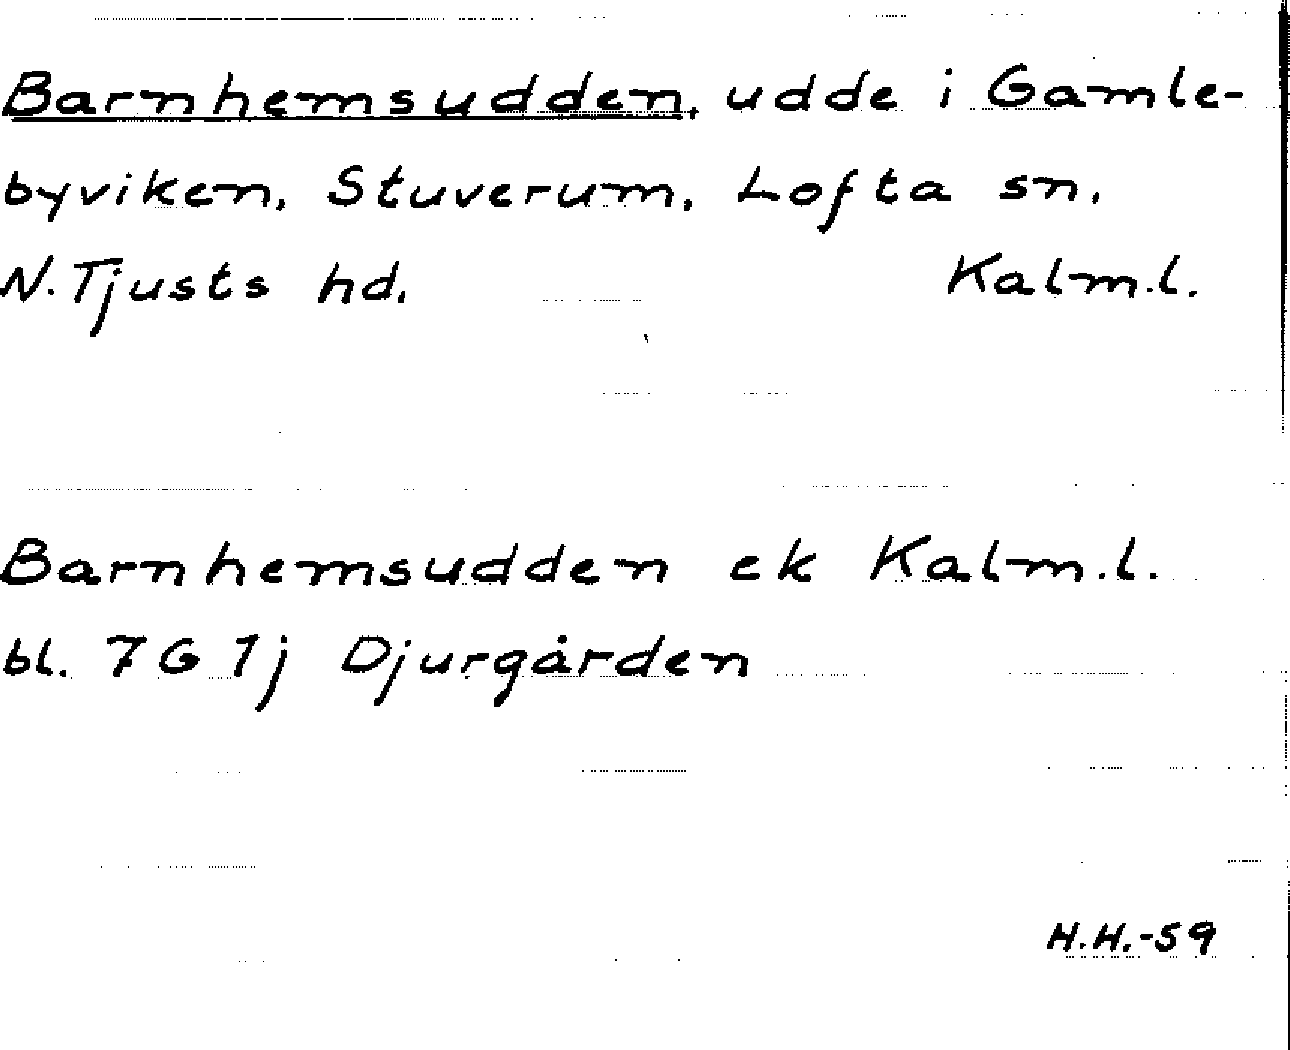 Barnhemsudden, udde i Gamle-
byviken, Stuverum, Lofta sn.
N. Tjusts hd. Kalm.l.
Barnhemsudden ek Kalm.l.
bl. 7G 1j Djurgården
H.H.-59